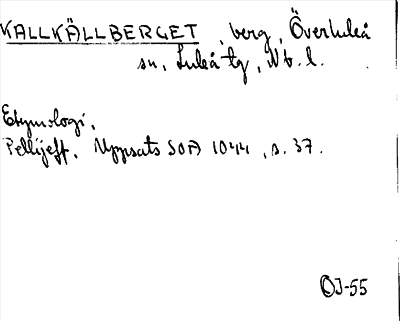 KALLKÄLLBERGET, berg, Överluleå
sn, Luleå tg, Nb. l.
Etymologi.
Pellijeff, Uppsats SOA 1044, s. 37.
OJ-55